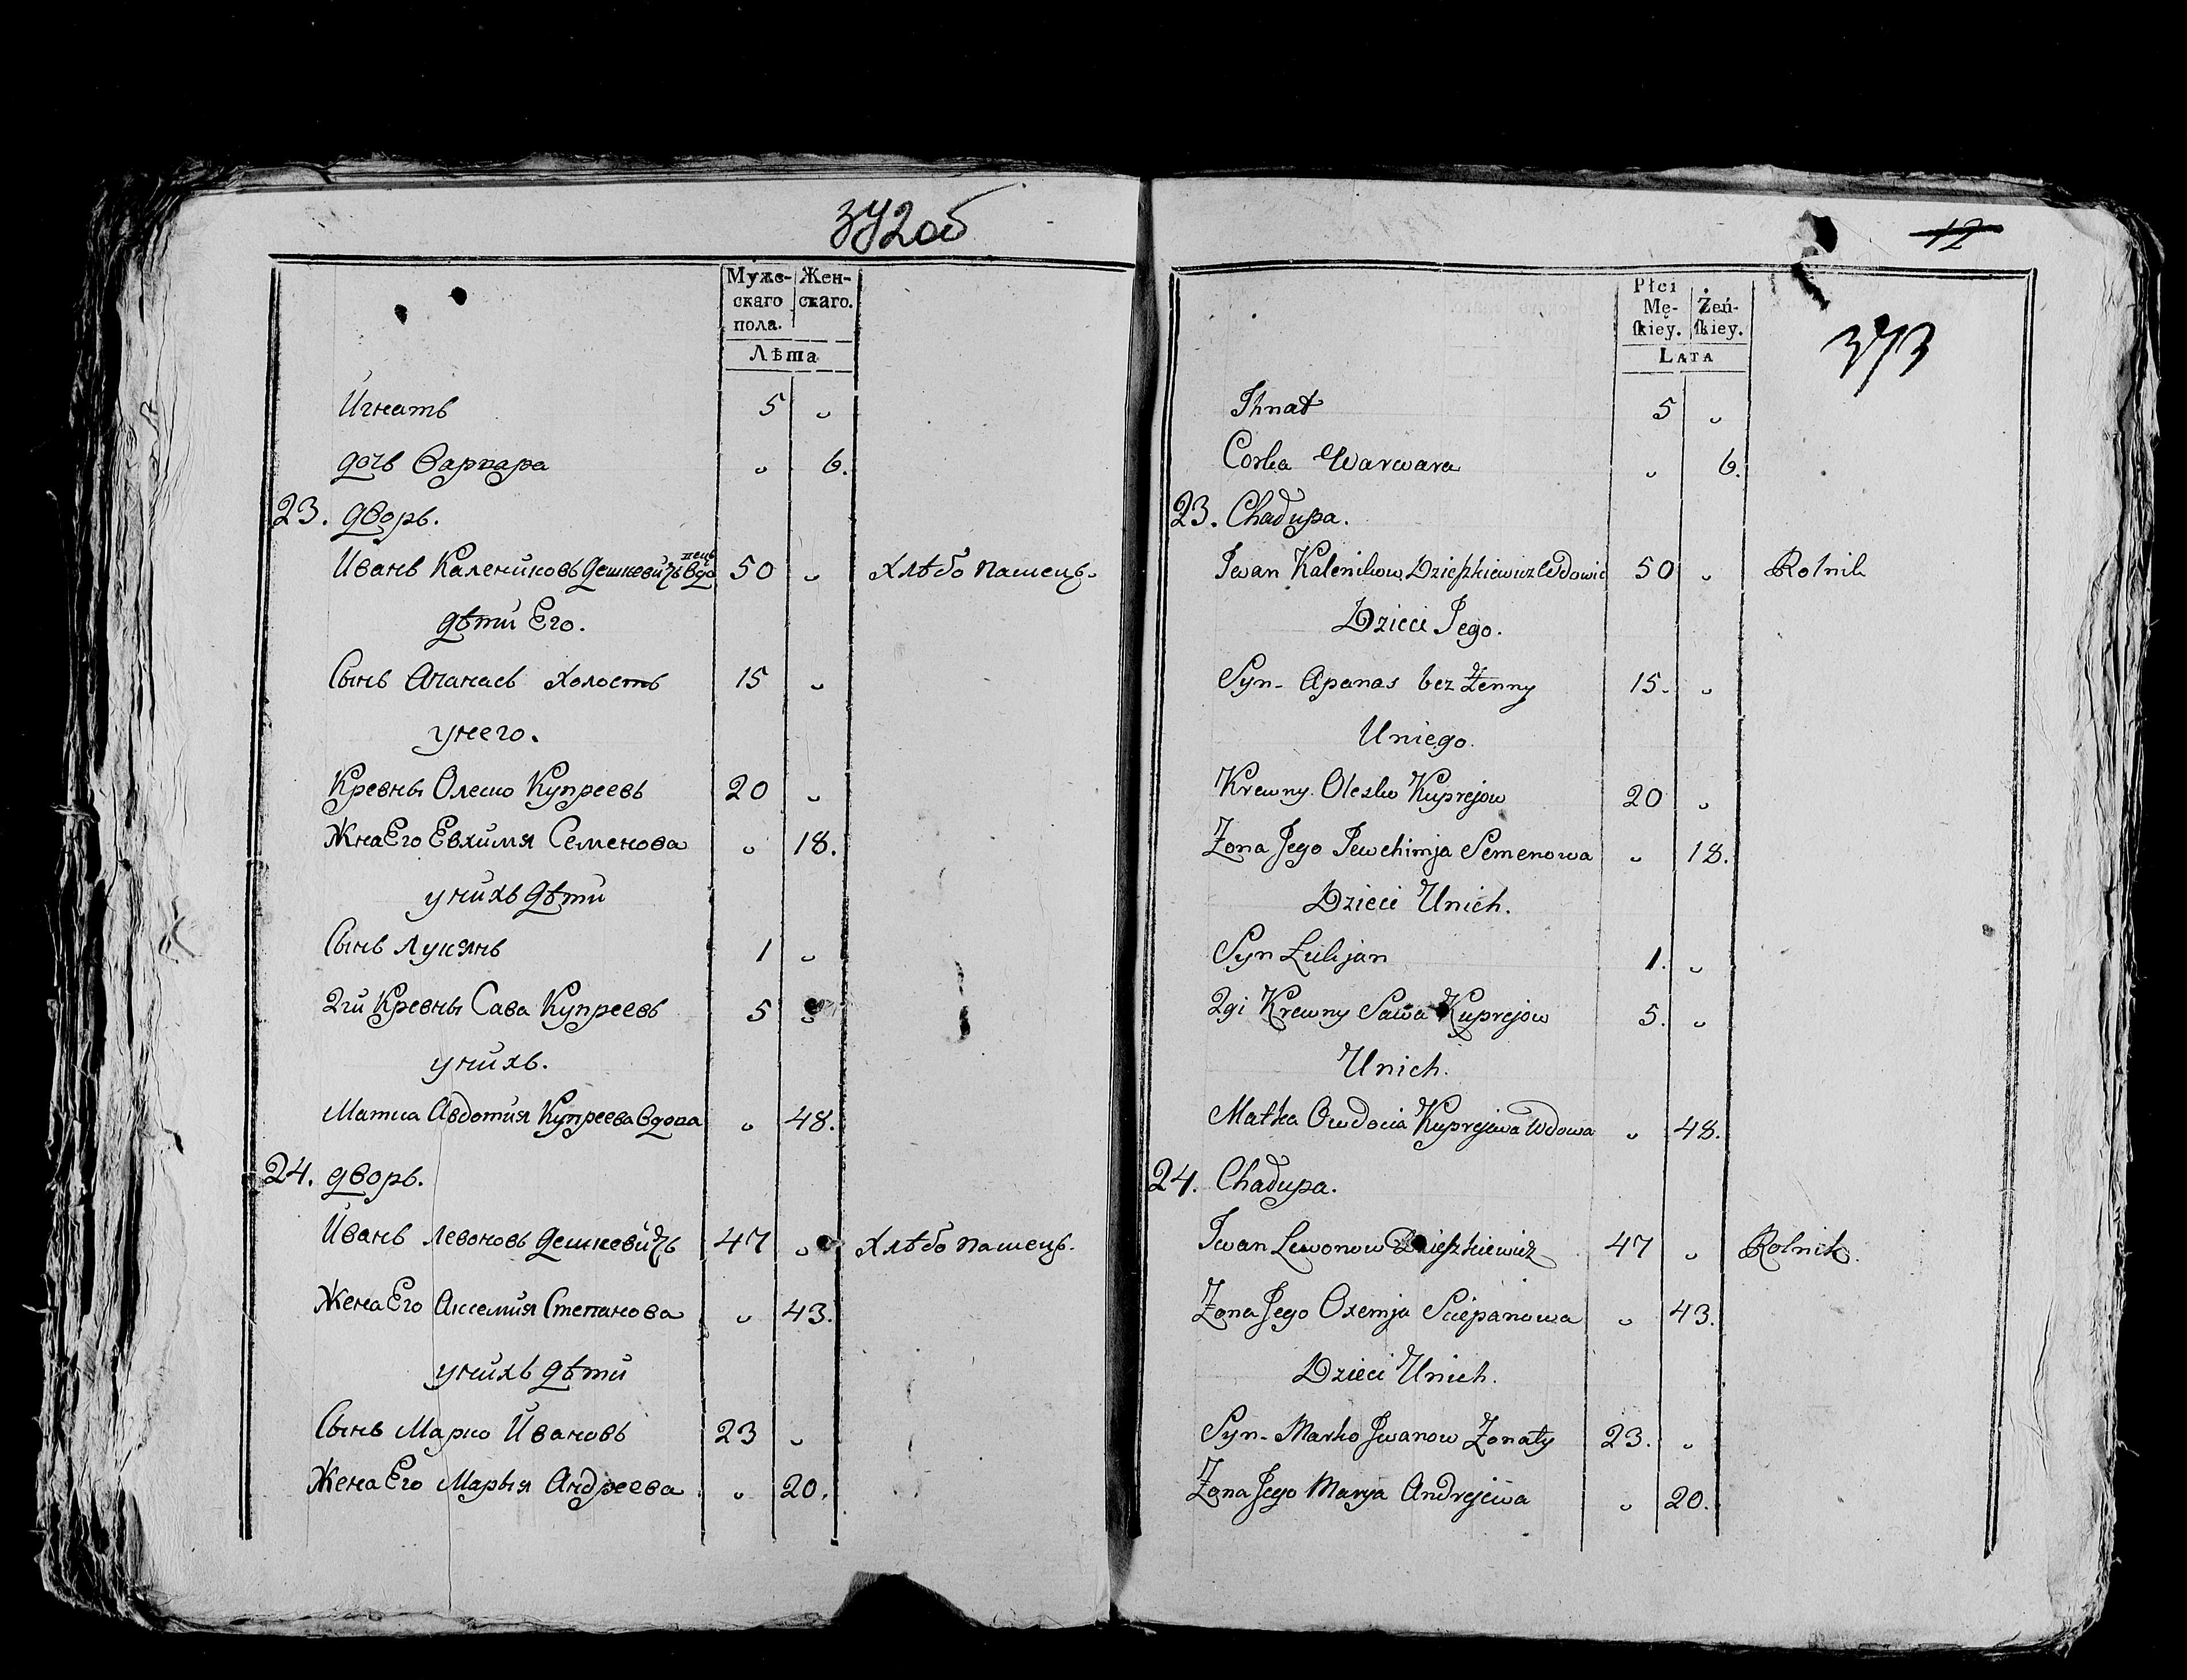 372об
Муже- Жен-
скаго скаго.
пола.
Лѣта
Игнатъ 5 „
дочь Варвара „ 6.
23. дворъ.
Иванъ Калениковъ Дешкевичъ Вдовецъ 50 „ Хлѣбопашецъ.
дѣти Его.
Сынъ Апанасъ холостъ 15 „
у него.
Кревны Олешко Купреевъ 20 „
Жна Его Евхимя Семенова „ 18.
у нихъ дѣти
Сынъ Лукянъ 1 „
2гй Кревны Сава Купреевъ 5 „
у нихъ.
Матка Авдотия Купреева вдова „ 48.
24. дворъ.
Иванъ Левоновъ Дешкевичъ 47 „ Хлѣбопашецъ.
Жена Его Аксемия Степанова „ 43.
у нихъ дѣти
Сынъ Марко Ивановъ 23 „
Жена Его Марья Андреева „ 20.
12
373
Płci
Mę- Żeń-
ſkiey. ſkiey.
LATA
Ihnat 5 „
Corka Warwara „ 6.
23. Chadupa.
Iwan Kalenikow Dzieſzkiewicz Wdowic 50 „ Rolnik
Dzieci Jego.
Syn - Apanas bez Żenny 15. „
Uniego.
Krewny Olesko Kuprejow 20 „
Żona Jego Jewchimja Semenowa „ 18.
Dzieci Unich.
Syn Łukjan 1. „
2gi Krewny Sawa Kuprejow 5. „
Unich.
Matka Owdocia Kuprejewa Wdowa „ 48.
24. Chadupa.
Iwan Lewonow Dzieſzkiewicz 47 „ Rolnik.
Żona Jego Oxemja Sciepanowa „ 43.
Dzieci Unich.
Syn - Marko Jwanow Żonaty 23. „
Żona Jego Marya Andrejewa „ 20.